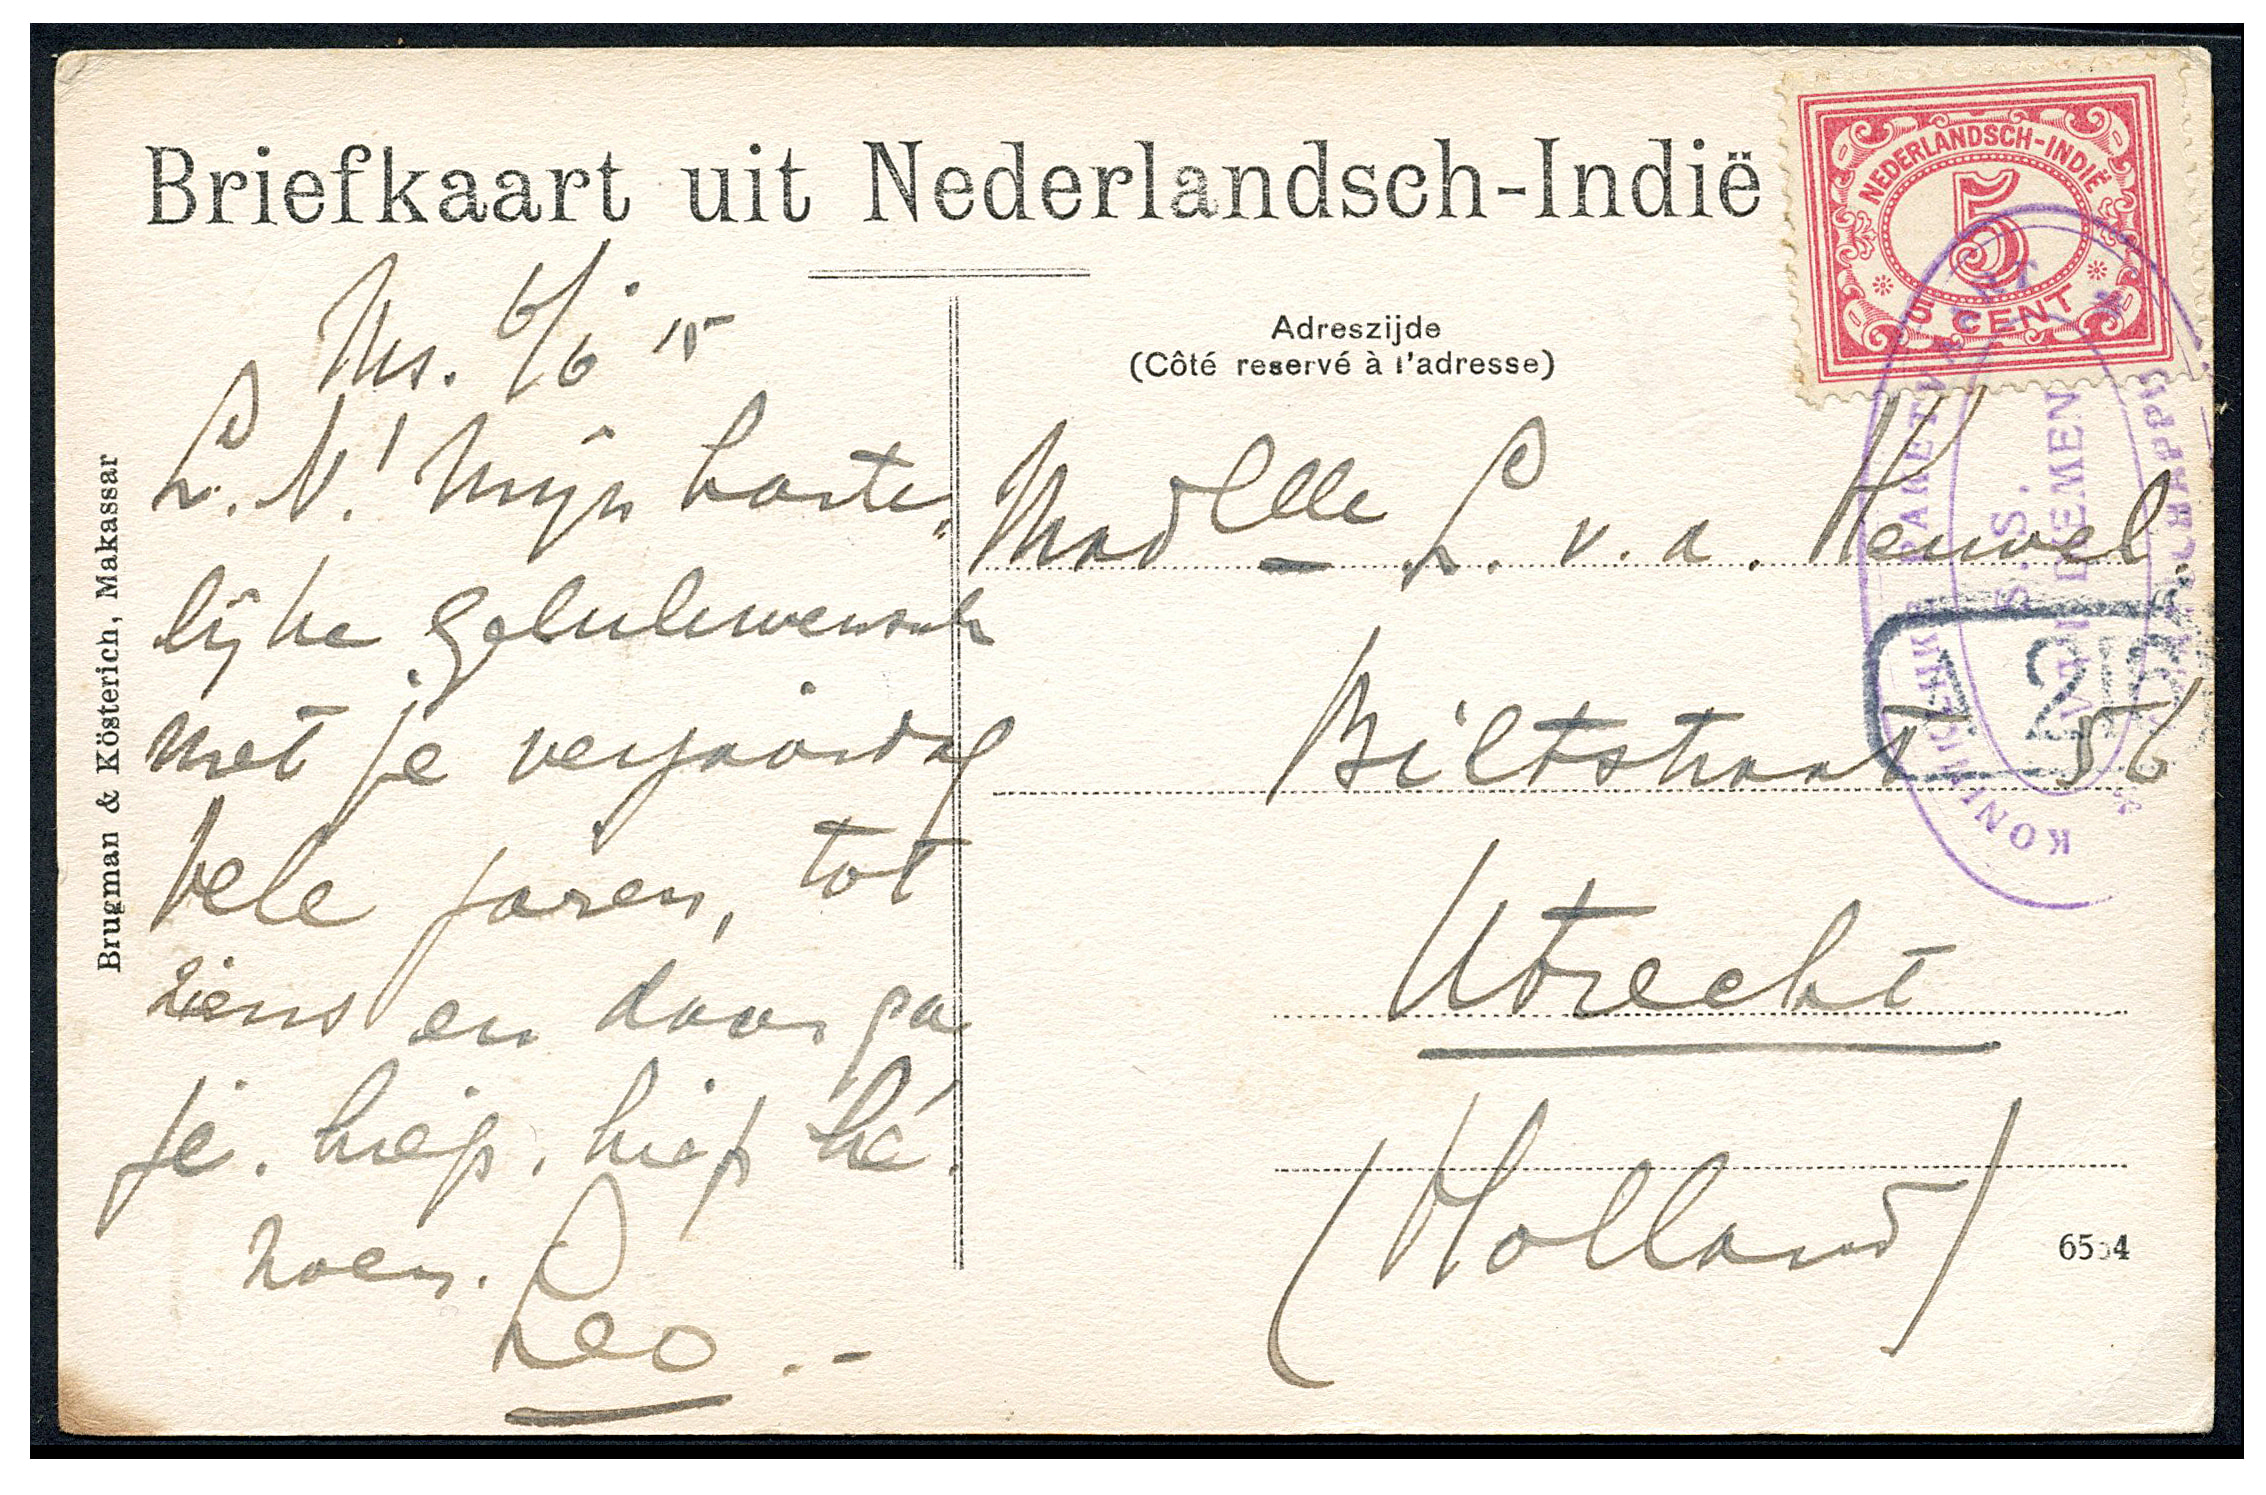 Briefkaart uit Nederlandsch-Indië
NEDERLANDSCH-INDIË
5
5 CENT
Adreszijde
(Côté reservé à l'adresse)
Ms. 6/6 15
L. N! Mijn harte„
lijke gelukwensch
met je verjaardag
vele jaren, tot
ziens en daar ga
je. hiep. hiep hé.
roen.
Leo . -
Brugman & Kösterich, Makassar
Madelle L. v. d. Heuvel.
Biltstraat 56
Utrecht
(Holland)
6554
KONINKLIJKE PAKETVAART
MAATSCHAPPIJ
S.S.
VAN DIEMEN